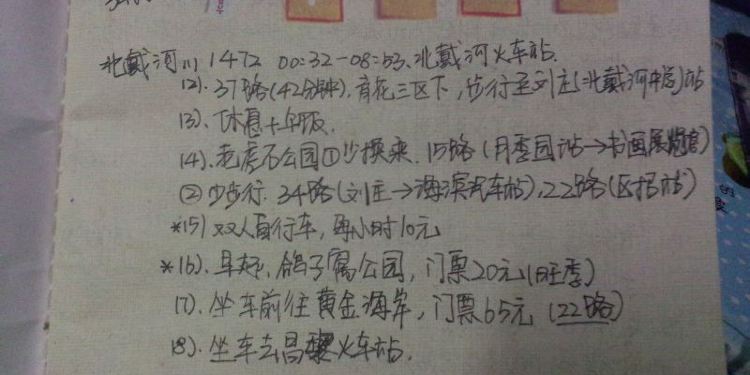 北戴河川1472 00:32-08:53.北戴河火车站.
12).37路(42分钟).育花三区下,步行至刘庄(北戴河中学)站
13).休息+午饭.
14).老虎石公园①少换乘.15路(月季园站→书画展览馆)
②少步行.34路(刘庄→海滨汽车站),22路(区招站)
*15)双人自行车,每小时10元
*16).早起,鸽子窝公园,门票20元(旺季)
17).坐车前往黄金海岸,门票65元(22路)
18).坐车去昌黎火车站.